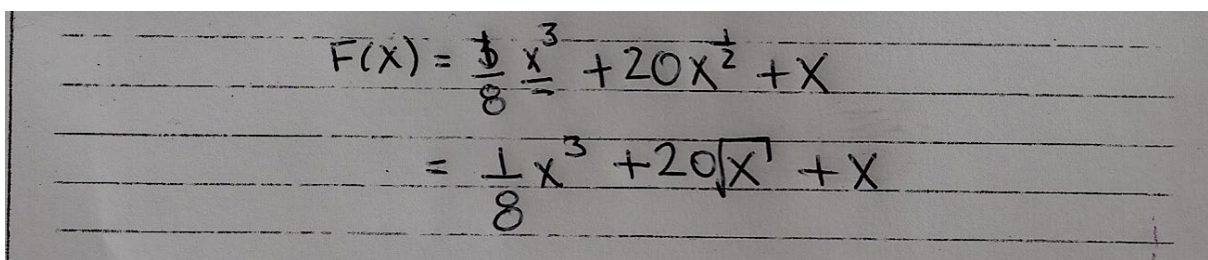 F(X) = 1/8 x³ + 20x^½ + x
= 1/8 x³ + 20√x + x